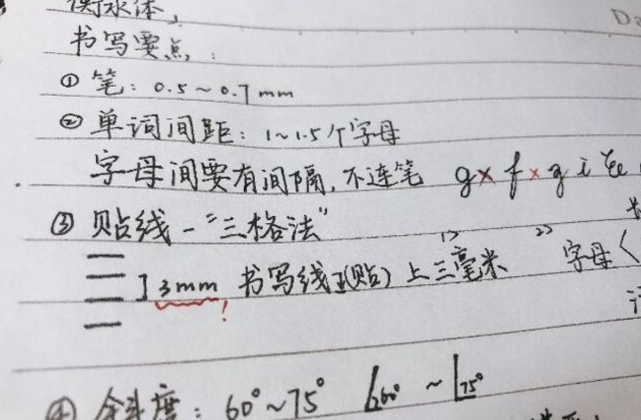 衡水体
书写要点:
① 笔: 0.5~0.7mm
② 单词间距: 1~1.5个字母
字母间要有间隔, 不连笔 g x f x g i
③ 贴线-“三格法”
3mm 书写线(贴)上三毫米 字母
!
④ 倾斜度: 60°~75° 60° ~ 75°